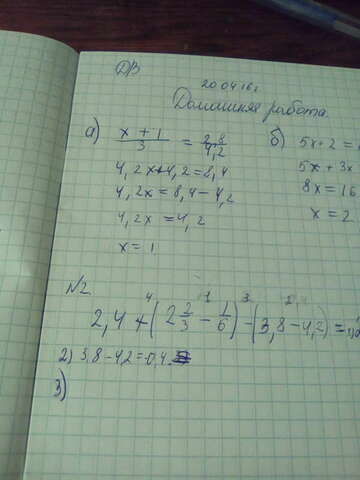 ДЗ
20.04.16г.
Домашняя работа.
а) x + 1 / 3 = 2,8 / 4,2
4,2x+4,2=8,4
4,2x=8,4-4,2
4,2x=4,2
x=1
б) 5x+2=
5x+3x
8x=16
x=2
№2.
4 1 3 2
2,4+(2 2/3 - 1/6)-(3,8-4,2)=
2) 3,8-4,2=-0,4.
3)